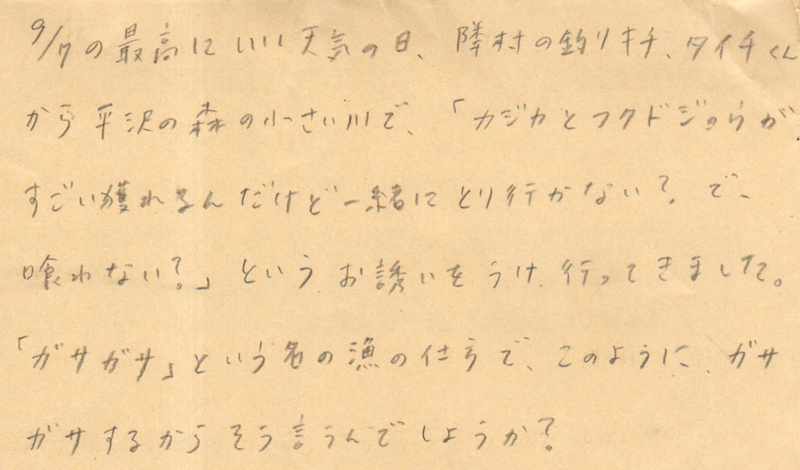 9/7の最高にいい天気の日、隣村の釣りキチ、タイチくん
から平沢の森の小さい川で、「カジカとフクドジョウが、
すごい獲れるんだけど一緒にとり行かない?。で、
喰わない?。」という、お誘いをうけ、行ってきました。
「ガサガサ」という名の漁の仕方で、このように、ガサ
ガサするからそう言うんでしょうか?